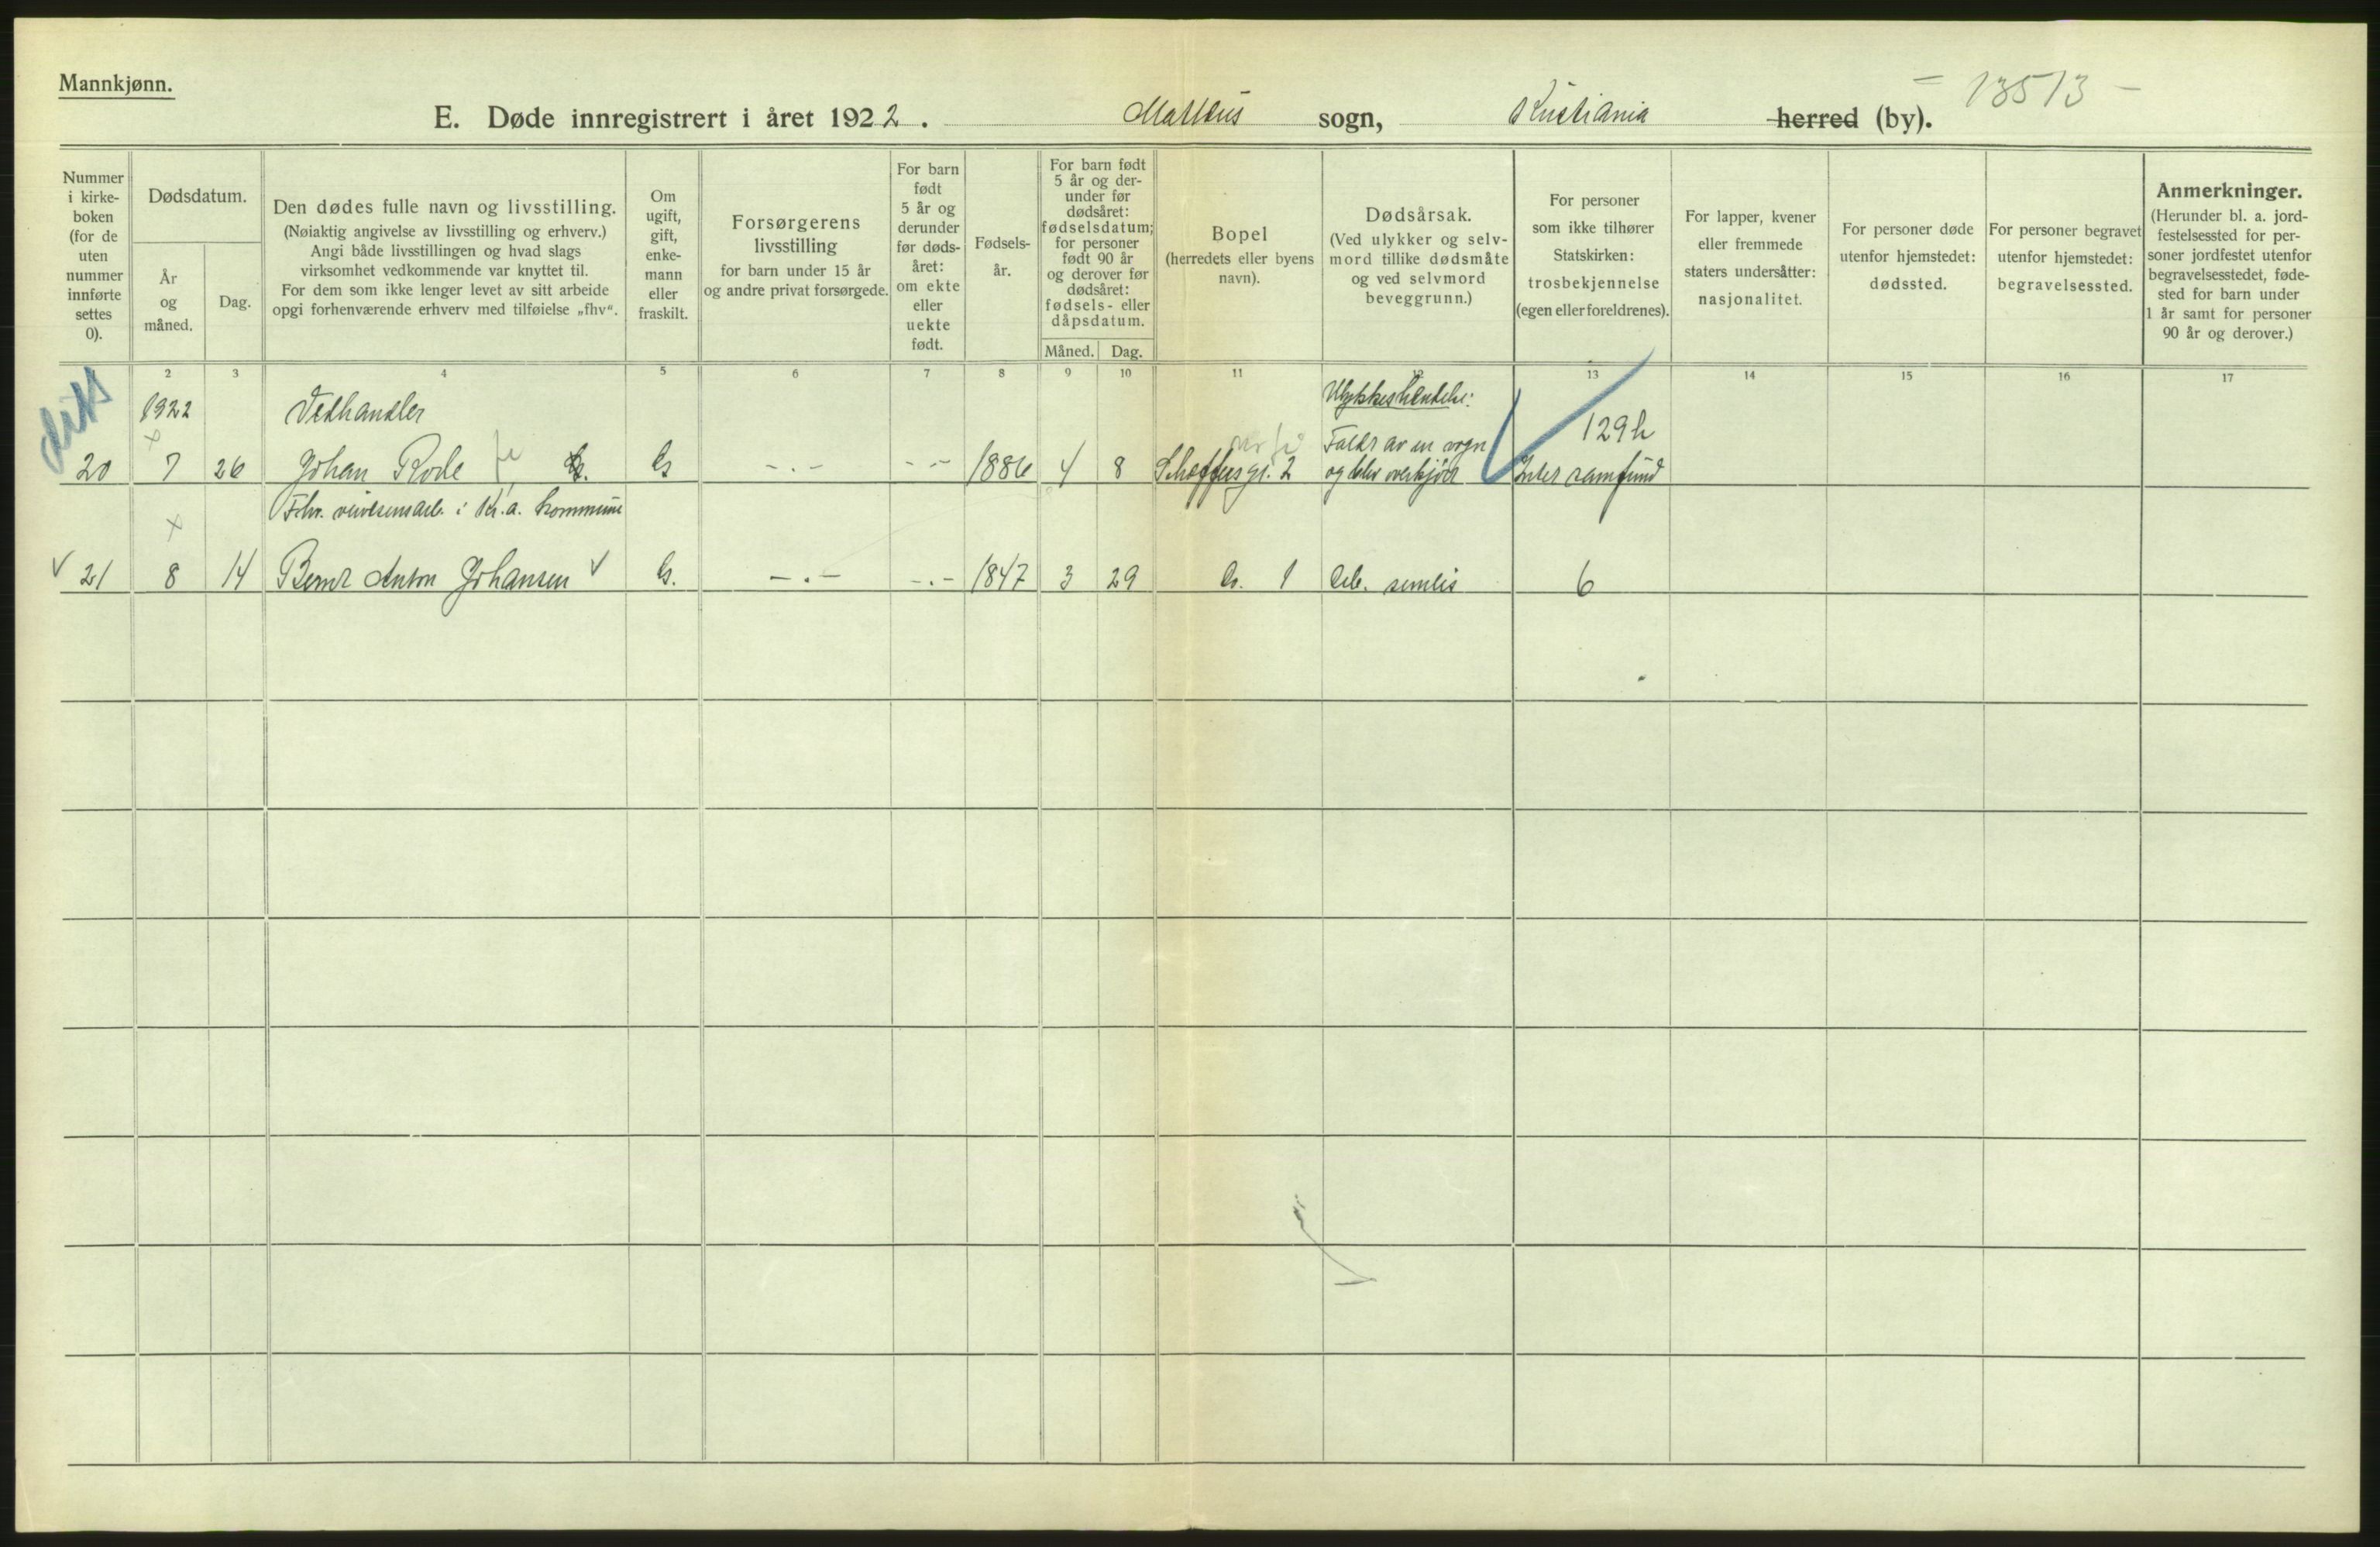 Mannkjønn.
= 13513 -
E. Døde innregistrert i året 1922. Matteus sogn, Kristiania herred (by).
Nummer
i kirke-
boken
(for de
uten
nummer
innførte
settes
0).
Dødsdatum.
År
og
måned.
Dag.
Den dødes fulle navn og livsstilling.
(Nøiaktig angivelse av livsstilling og erhverv.)
Angi både livsstillingen og hvad slags
virksomhet vedkommende var knyttet til.
For dem som ikke lenger levet av sitt arbeide
opgi forhenværende erhverv med tilføielse „fhv“.
Om
ugift,
gift,
enke-
mann
eller
fraskilt.
Forsørgerens
livsstilling
for barn under 15 år
og andre privat forsørgede.
For barn
født
5 år og
derunder
før døds-
året:
om ekte
eller
uekte
født.
Fødsels-
år.
For barn født
5 år og der-
under før
dødsåret:
fødselsdatum;
for personer
født 90 år
og derover før
dødsåret:
fødsels- eller
dåpsdatum.
Måned. Dag.
Bopel
(herredets eller byens
navn).
Dødsårsak.
(Ved ulykker og selv-
mord tillike dødsmåte
og ved selvmord
beveggrunn.)
For personer
som ikke tilhører
Statskirken:
trosbekjennelse
(egen eller foreldrenes).
For lapper, kvener
eller fremmede
staters undersåtter:
nasjonalitet.
For personer døde
utenfor hjemstedet:
dødssted.
For personer begravet
utenfor hjemstedet:
begravelsessted.
Anmerkninger.
(Herunder bl. a. jord-
festelsessted for per-
soner jordfestet utenfor
begravelsesstedet, føde-
sted for barn under
1 år samt for personer
90 år og derover.)
2 3 4 5 6 7 8 9 10 11 12 13 14 15 16 17
1922 Vedhandler Ulykkeshendelse:
x Faldt av en vogn 129h
20 7 26 Johan Rode G - . - - - 1886 4 8 Schoffersgt. 2 og blev overkjørt Intet samfund
x Fhv. veivesensarb. i Kr.a. kommune
√ 21 8 14 Bernt Anton Johansen √ G. - . - - . - 1847 3 29 1 senilis 6